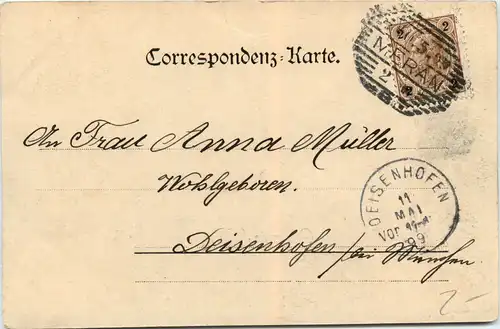 Correspondenz-Karte.
MERAN
2
2
2
An Frau Anna Müller
Wohlgeboren.
DEISENHOFEN
11
MAI
99
Deisenhofen / bei München.
2-